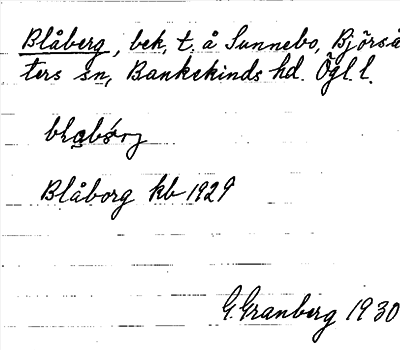 Blåberg, bek, t. å Sunnebo, Björsä
ters sn, Bankekinds hd. Ögl. l.
Blåborg kb 1929
G. Granberg 1930